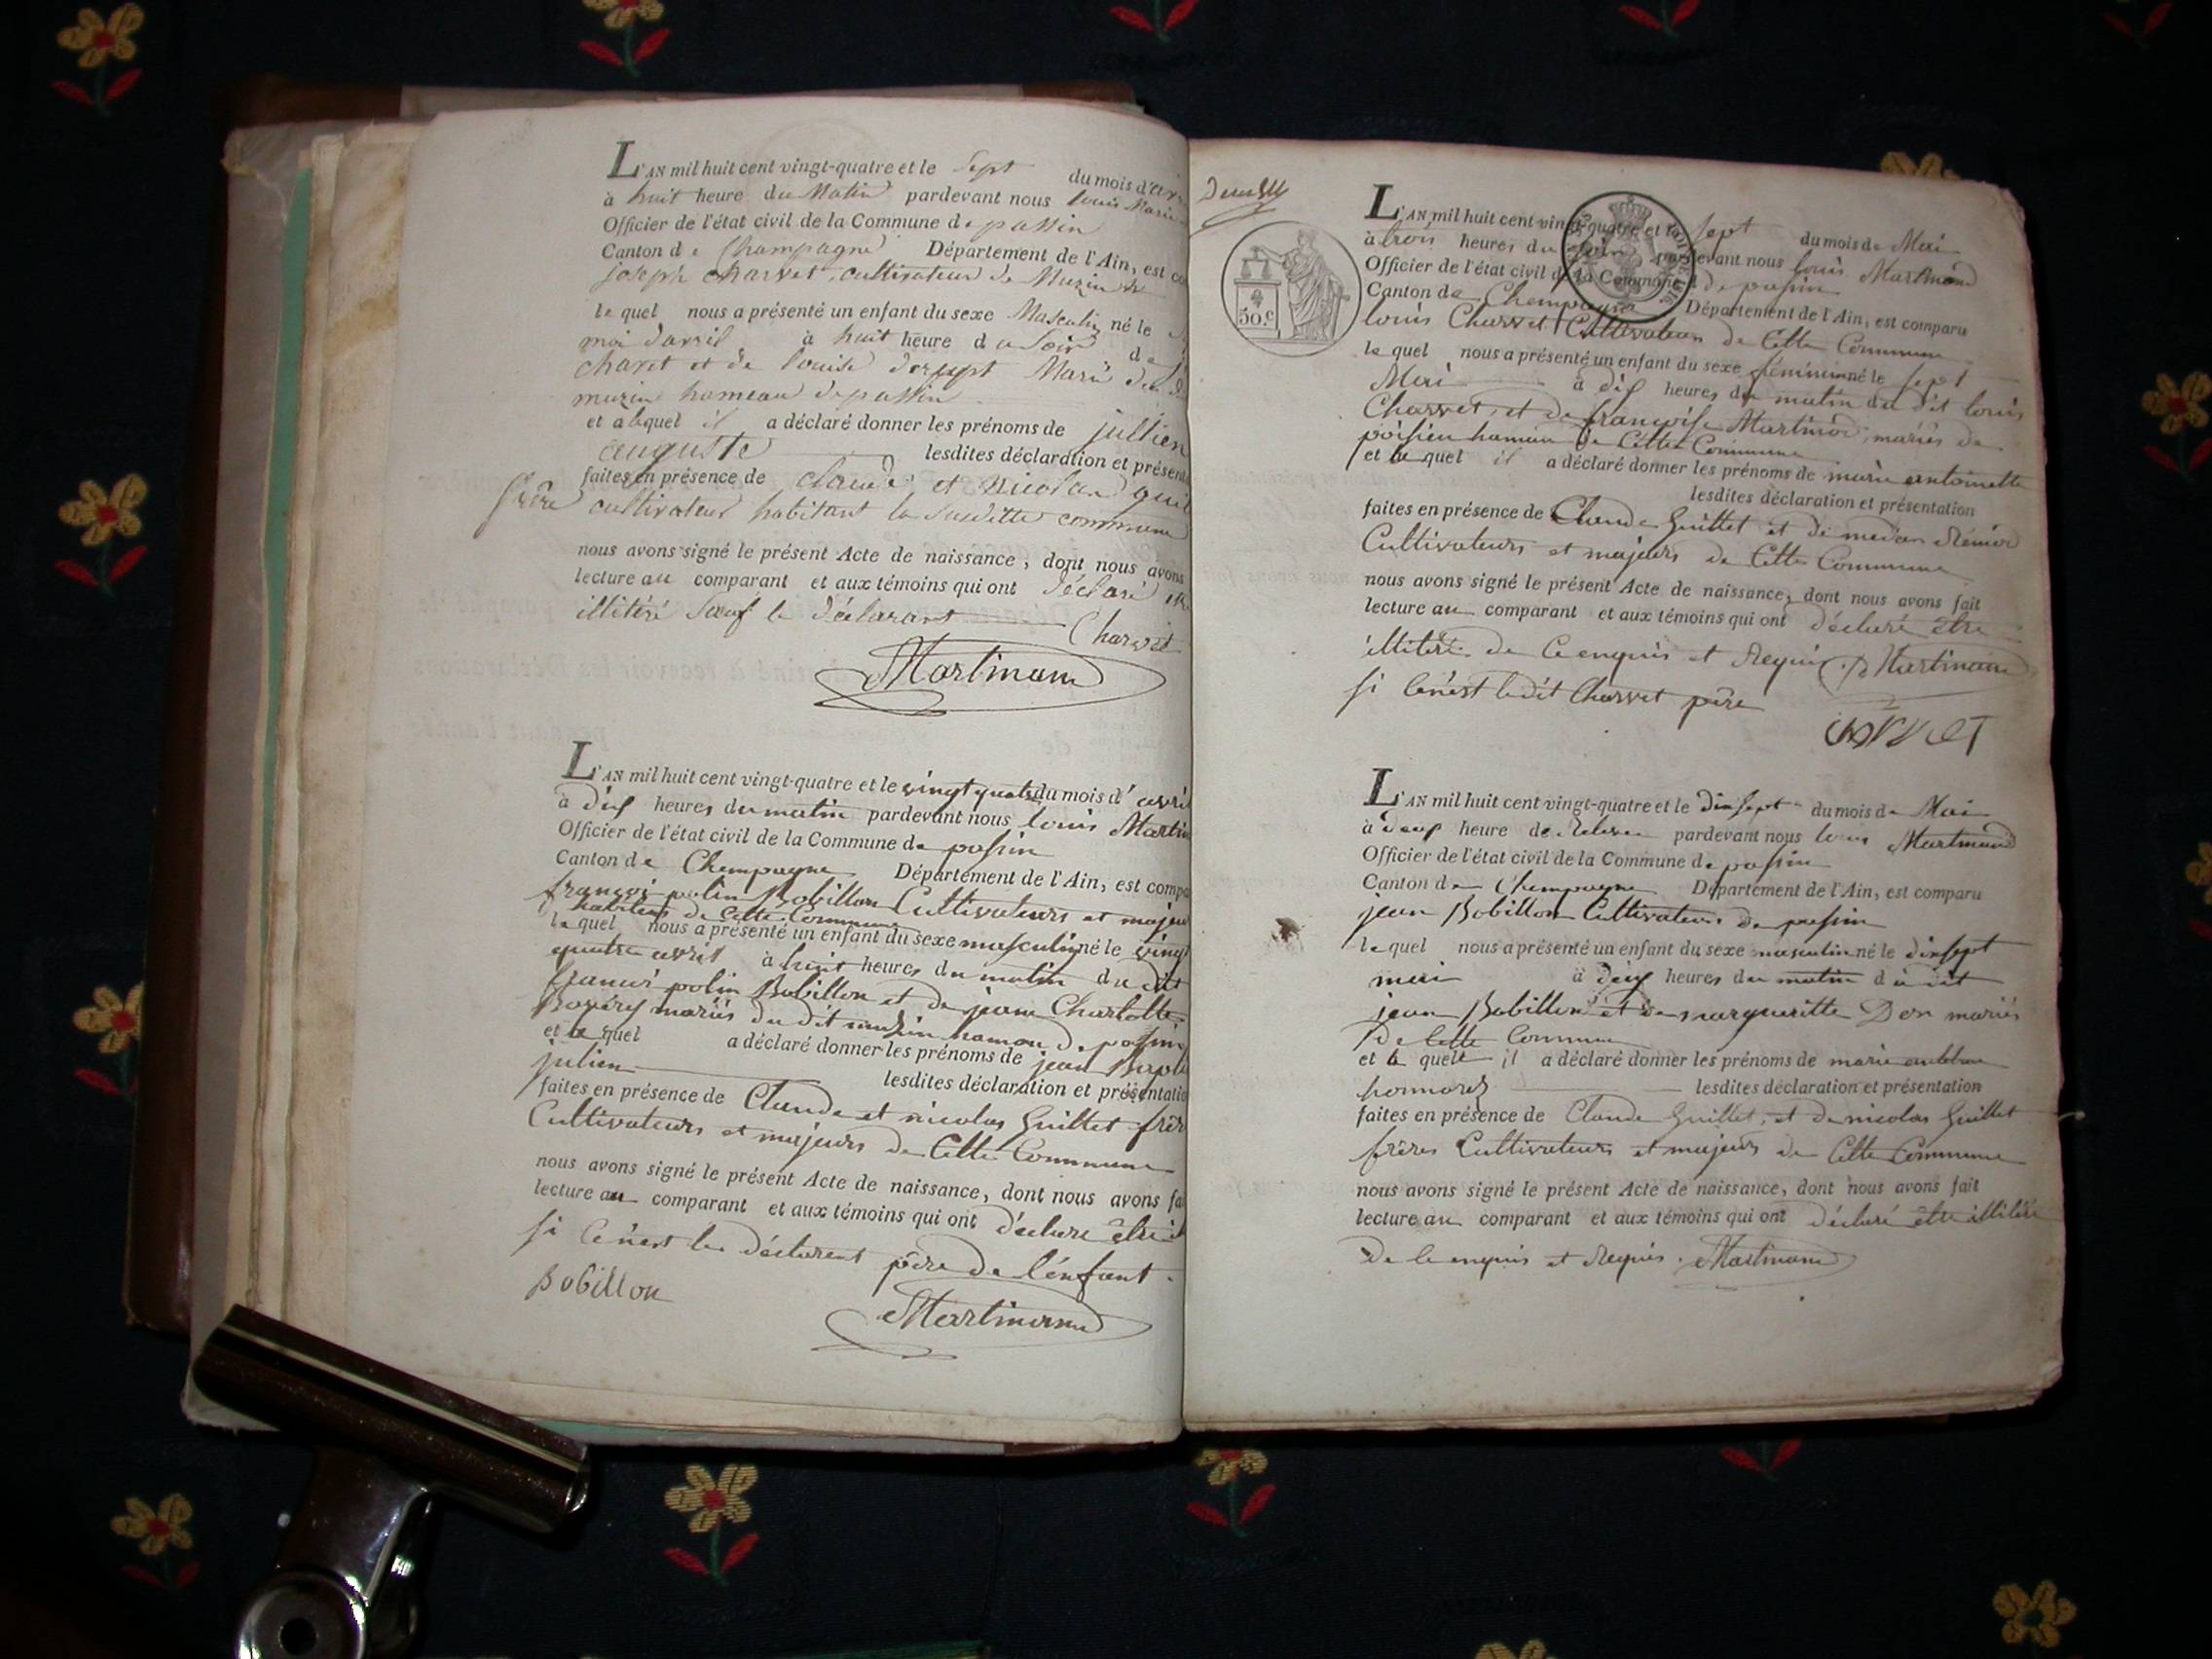 L'AN mil huit cent vingt-quatre et le Sept du mois d'avr
à huit heure du Matin pardevant nous louis Marie
Officier de l'état civil de la Commune de passin
Canton de Champagne Département de l'Ain, est co
joseph charvet, cultivateur de Muzin
le quel nous a présenté un enfant du sexe Masculin né le
moi davril à huit heure du Soir de
charet et de louise derupt Marié
muzin hameau de passin
et auquel il a déclaré donner les prénoms de jullien
auguste lesdites déclaration et présent
faites en présence de claude et nicolas guil
frère cultivateur habitant la susditte commune
nous avons signé le présent Acte de naissance, dont nous avons
lecture au comparant et aux témoins qui ont déclaré
illitéré Sauf le déclarant Charvet
Martinand
L'AN mil huit cent vingt-quatre et le vingt quatre du mois d'avril
à dix heures du matin pardevant nous louis Martin
Officier de l'état civil de la Commune de passin
Canton de Champagne Département de l'Ain, est compa
françois polin Bobillon Cultivateurs et majeu
habitans de Cette Commune
le quel nous a présenté un enfant du sexe masculin né le vingt
quatre avril à huit heures du matin du dit
francois polin Bobillon et de jeane Charlotte
mariés du dit muzin hamau de passin
et le quel a déclaré donner les prénoms de jean Bapti
julien lesdites déclaration et présentatio
faites en présence de Claude et nicolas Guillet frèr
Cultivateurs et majeurs de Cette Commune
nous avons signé le présent Acte de naissance, dont nous avons fa
lecture au comparant et aux témoins qui ont déclaré être
si cenest le déclarent père de lénfant.
Bobillon
Martinand
50.c
L'AN mil huit cent vingt-quatre et le sept du mois de Mai
à trois heures du soir pardevant nous louis Martinand
Officier de l'état civil de la Commune de passin
Canton de Champagne Département de l'Ain, est comparu
louis Charvet Cultivateur de Cette Commune
le quel nous a présenté un enfant du sexe féminin né le sept
Mai à dix heures du matin du dit louis
Charvet, et de françoise Martinod mariés de
poisieu hamau de Cette Commune
et le quel il a déclaré donner les prénoms de marie antoinette
lesdites déclaration et présentation
faites en présence de Claude Guillet et de
Cultivateurs et majeurs de Cette Commune
nous avons signé le présent Acte de naissance, dont nous avons fait
lecture au comparant et aux témoins qui ont déclaré être
illitéré de Ce enquis et Requis Martinand
si cenest le dit Charvet père
CHARVET
L'AN mil huit cent vingt-quatre et le dixsept du mois de Mai
à deux heure de Relevée pardevant nous louis Martinand
Officier de l'état civil de la Commune de passin
Canton de Champagne Département de l'Ain, est comparu
jean Bobillon Cultivateur de passin
le quel nous a présenté un enfant du sexe masculin né le dixsept
mai à dix heures du matin du dit
jean Bobillon et de margueritte Don mariés
de Cette Commune
et le quele il a déclaré donner les prénoms de marie
honnoré lesdites déclaration et présentation
faites en présence de Claude Guillet, et de nicolas Guillet
frères Cultivateurs et majeurs de Cette Commune
nous avons signé le présent Acte de naissance, dont nous avons fait
lecture au comparant et aux témoins qui ont déclaré être illitéré
de Ce enquis et Requis. Martinand